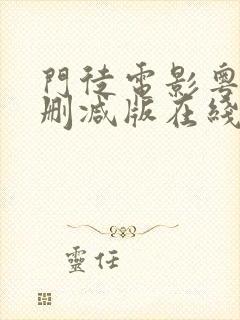 門徒電影粵
刪減版在綫
靈任